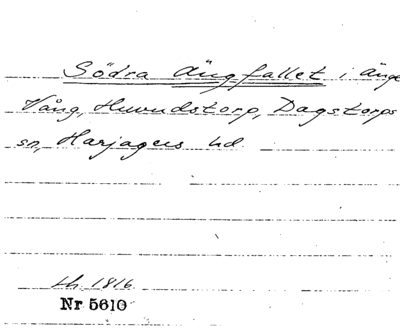 Södra Ängfallet i änge
Vång, Huvudstorp, Dagstorps
sn, Harjagers hd.
lh. 1816
Nr 5610